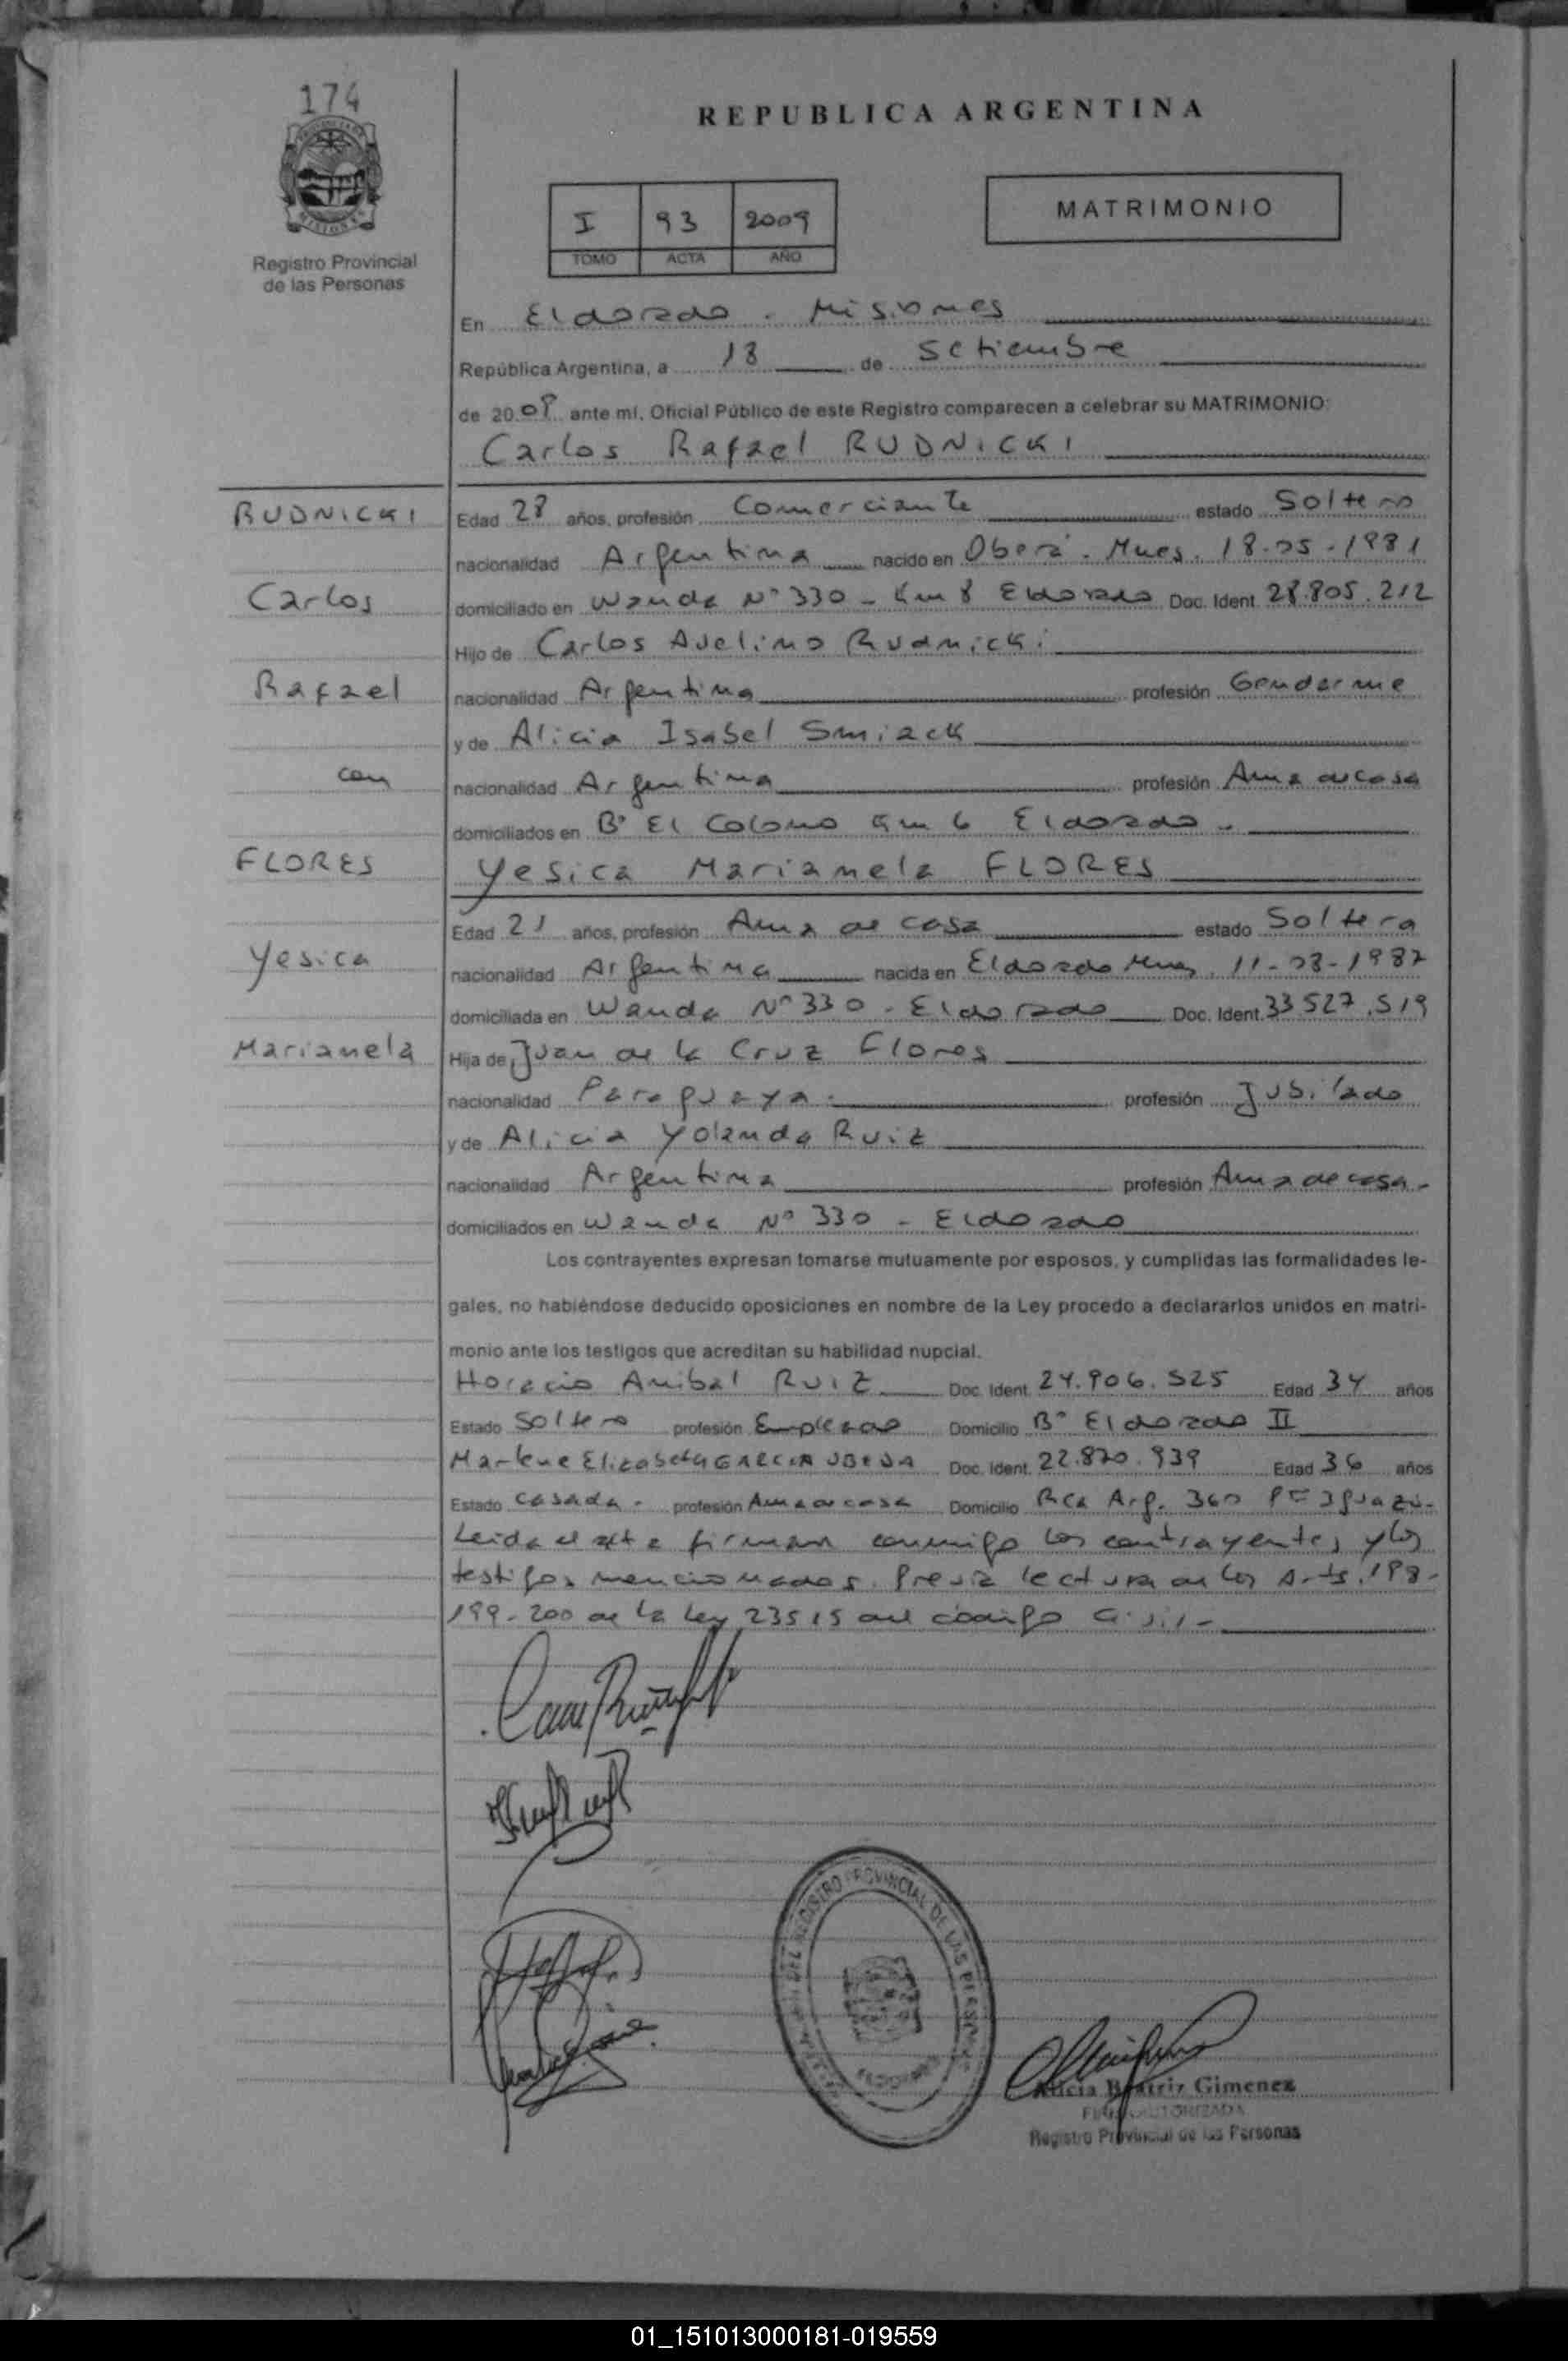 174
Registro Provincial
de las Personas
REPUBLICA ARGENTINA
I 93 2009
TOMO ACTA AÑO
MATRIMONIO
En Eldorado - Misiones
República Argentina, a 18 de Setiembre
de 2009 ante mí, Oficial Público de este Registro comparecen a celebrar su MATRIMONIO:
Carlos Rafael RUDNICKI
RUDNICKI
Carlos
Rafael
con
FLORES
Yesica
Marianela
Edad 28 años, profesión Comerciante estado Soltero
nacionalidad Argentina nacido en Oberá - Mnes. 18-05-1981
domiciliado en Wanda Nº 330 - Km 8 Eldorado Doc. Ident. 28.805.212
Hijo de Carlos Avelino Rudnicki
nacionalidad Argentina profesión Gendarme
y de Alicia Isabel Smiack
nacionalidad Argentina profesión Ama de casa
domiciliados en Bº El Colono Km 6 Eldorado -
Yesica Marianela FLORES
Edad 21 años, profesión Ama de casa estado Soltera
nacionalidad Argentina nacida en Eldorado Mnes, 11-08-1987
domiciliada en Wanda Nº 330 - Eldorado Doc. Ident. 33.527.519
Hija de Juan de la Cruz Flores
nacionalidad Paraguaya - profesión Jubilado
y de Alicia Yolanda Ruiz
nacionalidad Argentina profesión Ama de casa -
domiciliados en Wanda Nº 330 - Eldorado
Los contrayentes expresan tomarse mutuamente por esposos, y cumplidas las formalidades le-
gales, no habiéndose deducido oposiciones en nombre de la Ley procedo a declararlos unidos en matri-
monio ante los testigos que acreditan su habilidad nupcial.
Horacio Anibal RUIZ Doc. Ident. 24.906.525 Edad 34 años
Estado Soltero profesión Empleado Domicilio Bº Eldorado II
Marlene Elizabeth GARCIA UBEDA Doc. Ident. 22.820.939 Edad 36 años
Estado Casada - profesión Ama de casa Domicilio Rca Arg. 360 Pto Iguazú -
Leida el acta firman conmigo los contrayentes y los
testigos mencionados. Previa lectura de los Arts. 198-
199-200 de la Ley 23515 del código Civil -
REGISTRO PROVINCIAL DE LAS PERSONAS
Alicia Beatriz Gimenez
FIRMA AUTORIZADA
Registro Provincial de las Personas
01_151013000181-019559